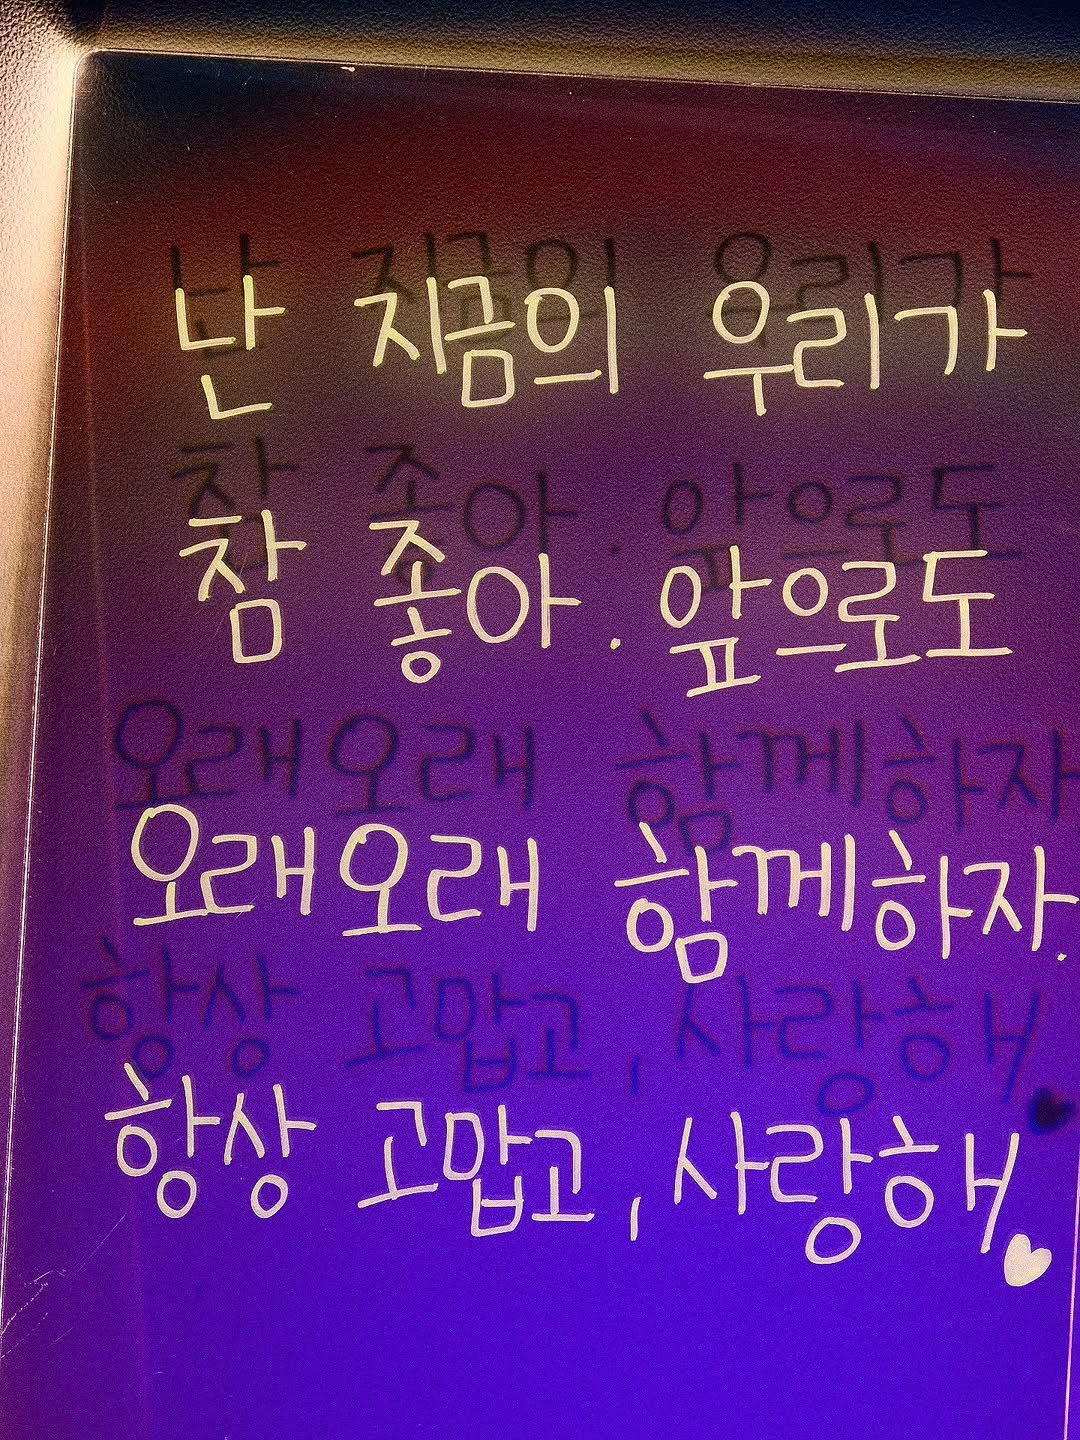 난 지금의 우리가
참 좋아. 앞으로도
오래오래 함께하자.
항상 고맙고, 사랑해